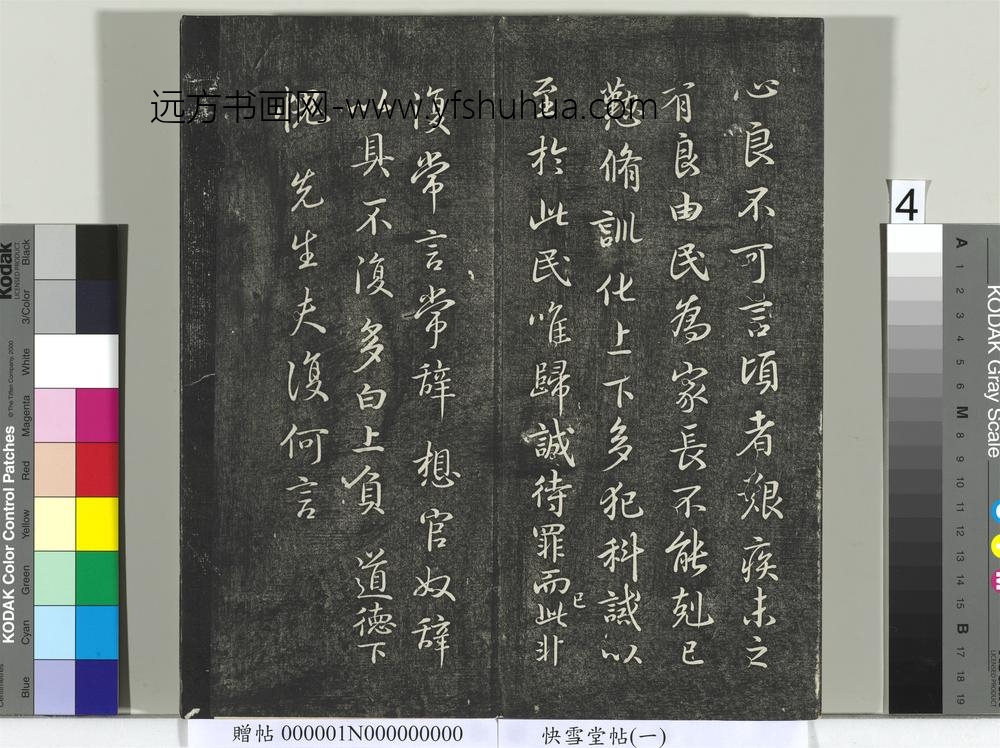 心良不可言頃者艱疾未之
有良由民為家長不能剋己
懃脩訓化上下多犯科誡以
至於此民唯歸誠待罪而已此非
復常言常辭 想官奴辭
以具不復多白上負 道德下
愧先生夫復何言
远方书画网-www.yfshuhua.com(
4
贈帖 000001N000000000
快雪堂帖(一)
Kodak
LICENSED PRODUCT
KODAK Color Control Patches
© The Tiffen Company, 2000
Black
3/Color
White
Magenta
Red
Yellow
Green
Cyan
Blue
Centimetres
KODAK Gray Scale
A 1 2 3 4 5 6 M 8 9 10 11 12 13 14 15 B 17 18 19